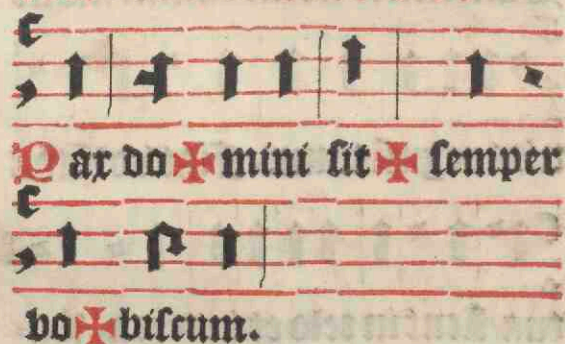 Pax do✠mini sit ✠ semper
vo✠biscum.